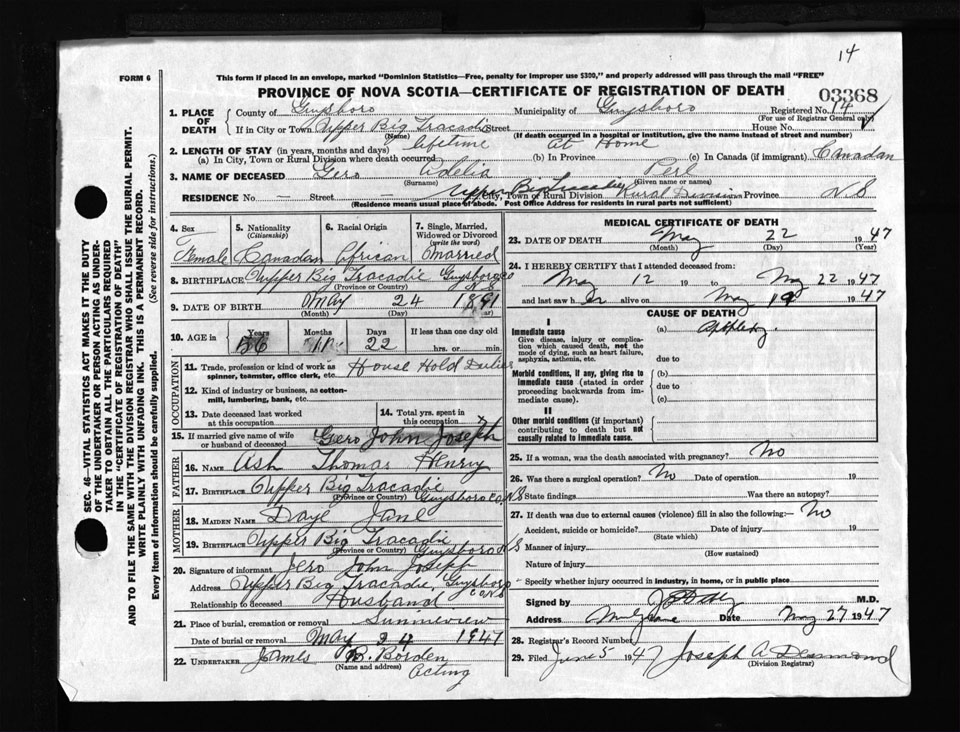 14
FORM 6
This form if placed in an envelope, marked "Dominion Statistics—Free, penalty for improper use $300," and properly addressed will pass through the mail "FREE"
PROVINCE OF NOVA SCOTIA—CERTIFICATE OF REGISTRATION OF DEATH
03368
1. PLACE OF DEATH
County of Guysboro Municipality of Guysboro Registered No. 14
(For use of Registrar General only)
If in City or Town Upper Big Tracadie Street House No.
(Name) (If death occurred in a hospital or institution, give the name instead of street and number)
2. LENGTH OF STAY (in years, months and days) lifetime at Home
(a) In City, Town or Rural Division where death occurred (b) In Province (c) In Canada (if immigrant) Canadan
3. NAME OF DECEASED Gero Adelia Perl
(Surname) (Given name or names)
RESIDENCE No. — Street — City, Town or Rural Division Upper Big Tracadie Rural Division Province N S
(Residence means usual place of abode. Post Office Address for residents in rural parts not sufficient)
4. Sex Female
5. Nationality (Citizenship) Canadan
6. Racial Origin African
7. Single, Married, Widowed or Divorced (write the word) Married
8. BIRTHPLACE Upper Big Tracadie Guysboro Co N S
(Province or Country)
9. DATE OF BIRTH May 24 1891
(Month) (Day) (Year)
10. AGE in Years 56 Months Days 22 If less than one day old
hrs. or min.
OCCUPATION
11. Trade, profession or kind of work as spinner, teamster, office clerk, etc. House Hold Duties
12. Kind of industry or business, as cotton-mill, lumbering, bank, etc.
13. Date deceased last worked at this occupation
14. Total yrs. spent in this occupation
15. If married give name of wife or husband of deceased Gero John Joseph
FATHER
16. NAME Ash Thomas Henry
17. BIRTHPLACE Upper Big Tracadie Guysboro Co. N S
(Province or Country)
MOTHER
18. MAIDEN NAME Daye Jane
19. BIRTHPLACE Upper Big Tracadie Guysboro N S
(Province or Country)
20. Signature of informant Jero John Joseph
Address Upper Big Tracadie, Guysboro Co N S
Relationship to deceased Husband
21. Place of burial, cremation or removal Sunnieview
Date of burial or removal May 24 1947
22. UNDERTAKER James B. Borden
(Name and address)
Acting
MEDICAL CERTIFICATE OF DEATH
23. DATE OF DEATH May 22 1947
(Month) (Day) (Year)
24. I HEREBY CERTIFY that I attended deceased from
May 12 19 to May 22 1947
and last saw h er alive on May 19 1947
CAUSE OF DEATH
I
Immediate cause
Give disease, injury or complication which caused death, not the mode of dying, such as heart failure, asphyxia, asthenia, etc.
(a) Apoplexy
due to
Morbid conditions, if any, giving rise to immediate cause (stated in order proceeding backwards from immediate cause).
(b)
due to
(c)
II
Other morbid conditions (if important) contributing to death but not causally related to immediate cause.
25. If a woman, was the death associated with pregnancy? No
26. Was there a surgical operation? No Date of operation 19
State findings Was there an autopsy?
27. If death was due to external causes (violence) fill in also the following: No
Accident, suicide or homicide? Date of injury 19
(State which)
Manner of injury
(How sustained)
Nature of injury
Specify whether injury occurred in industry, in home, or in public place
Signed by M.D.
Address Date May 27 1947
28. Registrar's Record Number
29. Filed June 5 1947 Joseph A Desmond
(Division Registrar)
SEC. 46—VITAL STATISTICS ACT MAKES IT THE DUTY
OF THE UNDERTAKER OR PERSON ACTING AS UNDER-
TAKER TO OBTAIN ALL THE PARTICULARS REQUIRED
IN THE "CERTIFICATE OF REGISTRATION OF DEATH"
AND TO FILE THE SAME WITH THE DIVISION REGISTRAR WHO SHALL ISSUE THE BURIAL PERMIT.
WRITE PLAINLY WITH UNFADING INK. THIS IS A PERMANENT RECORD.
Every item of information should be carefully supplied. (See reverse side for instructions.)